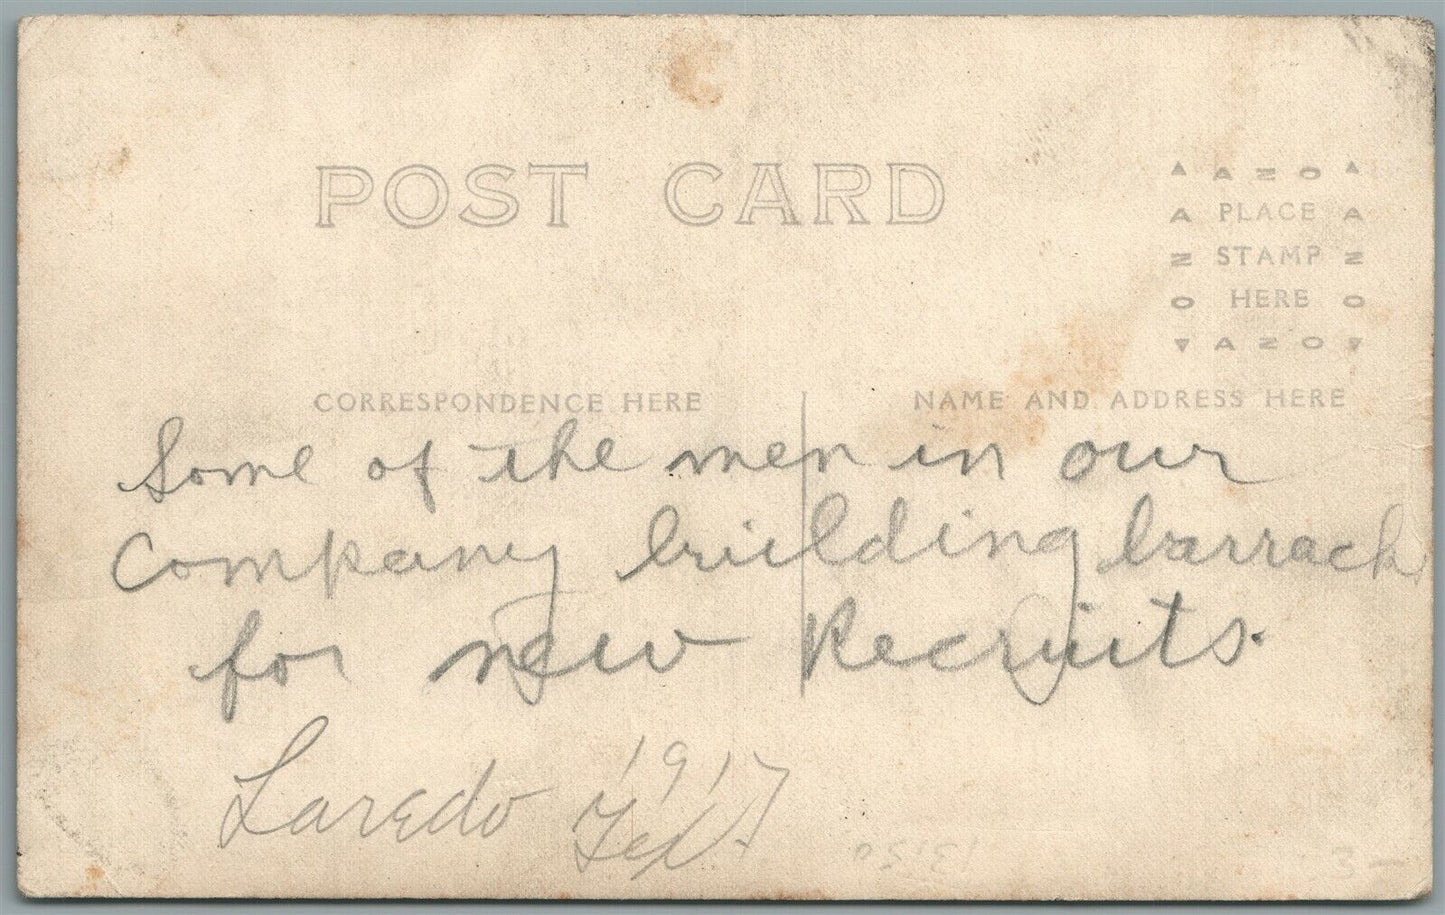 POST CARD
AZO
PLACE
STAMP
HERE
AZO
AZO
AZO
CORRESPONDENCE HERE
NAME AND ADDRESS HERE
Some of the men in our
Company building barrack
for new Recruits.
Laredo Tex.
1917
3-